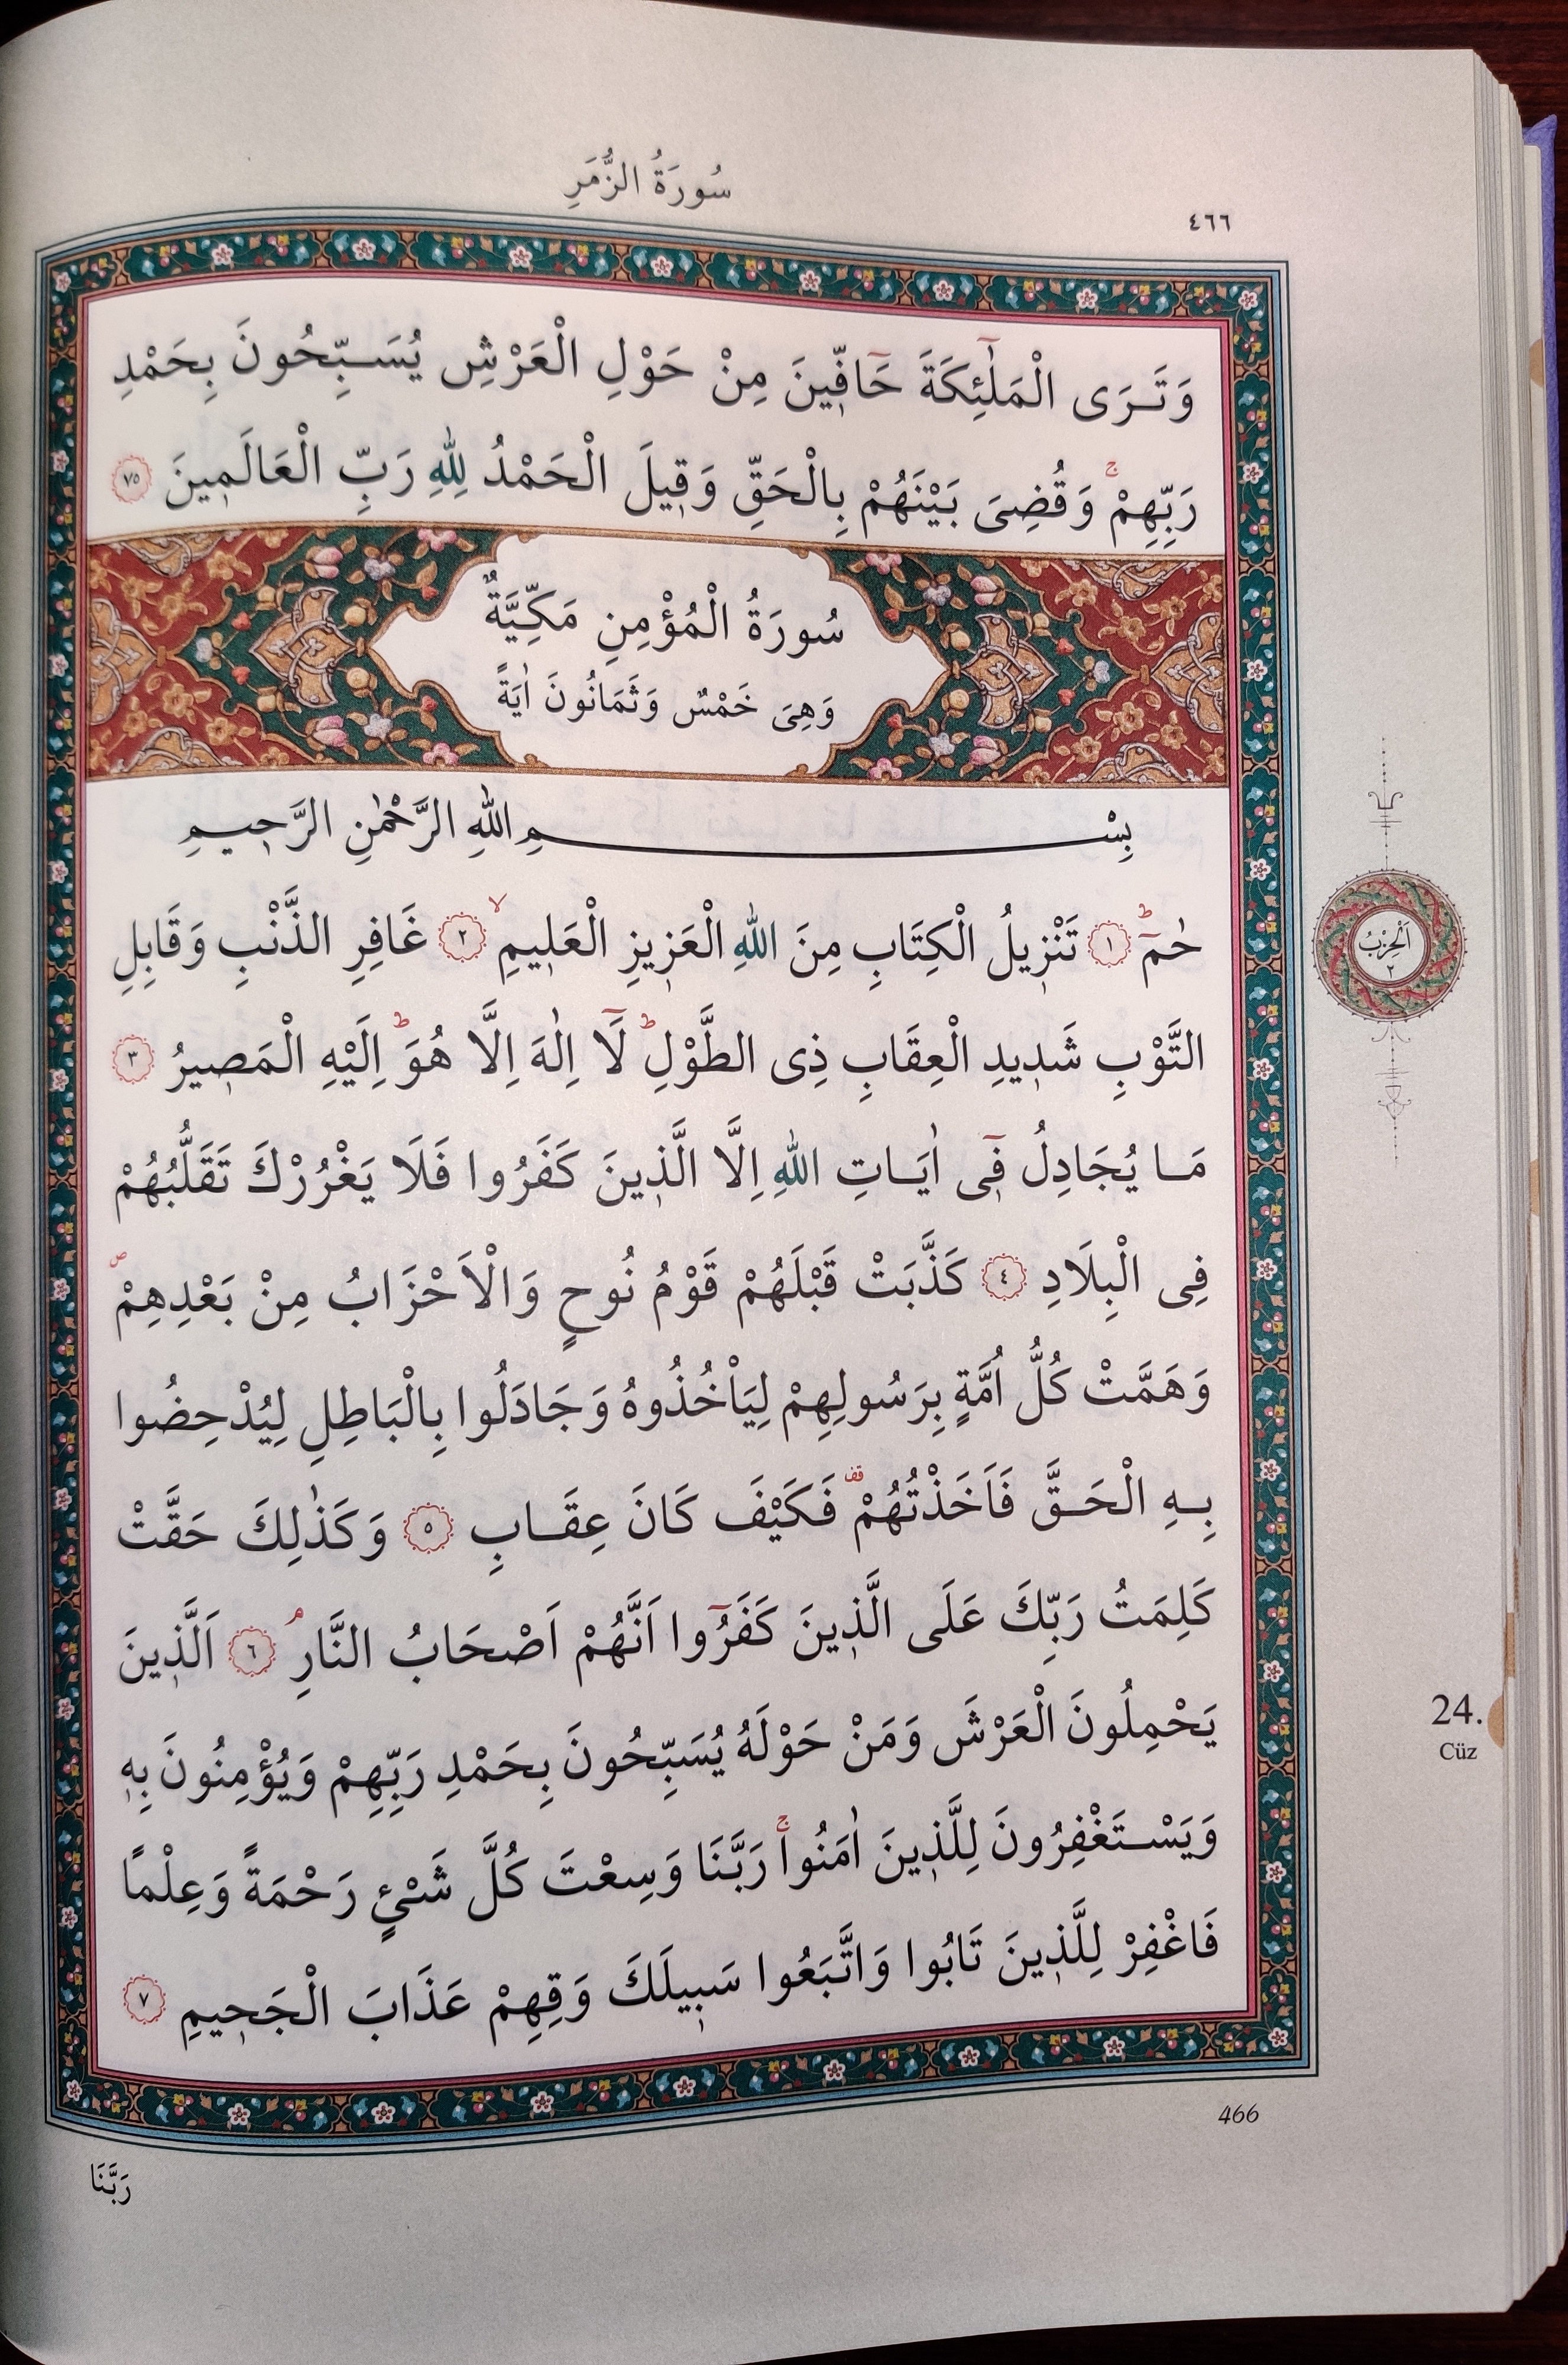 سُورَةُ الزُّمَرِ
٤٦٦
وَتَرَى الْمَلٰٓئِكَةَ حَٓافّ۪ينَ مِنْ حَوْلِ الْعَرْشِ يُسَبِّحُونَ بِحَمْدِ
رَبِّهِمْۚ وَقُضِىَ بَيْنَهُمْ بِالْحَقِّ وَق۪يلَ الْحَمْدُ لِلّٰهِ رَبِّ الْعَالَم۪ينَ ﴿٧٥﴾
سُورَةُ الْمُؤْمِنِ مَكِّيَّةٌ
وَهِىَ خَمْسٌ وَثَمَانُونَ اٰيَةً
بِسْمِ اللّٰهِ الرَّحْمٰنِ الرَّح۪يمِ
حٰمٓۜ ﴿١﴾ تَنْز۪يلُ الْكِتَابِ مِنَ اللّٰهِ الْعَز۪يزِ الْعَل۪يمِۙ ﴿٢﴾ غَافِرِ الذَّنْبِ وَقَابِلِ
التَّوْبِ شَد۪يدِ الْعِقَابِ ذِى الطَّوْلِۜ لَٓا اِلٰهَ اِلَّا هُوَۜ اِلَيْهِ الْمَص۪يرُ ﴿٣﴾
مَا يُجَادِلُ ف۪ٓى اٰيَاتِ اللّٰهِ اِلَّا الَّذ۪ينَ كَفَرُوا فَلَا يَغْرُرْكَ تَقَلُّبُهُمْ
فِى الْبِلَادِ ﴿٤﴾ كَذَّبَتْ قَبْلَهُمْ قَوْمُ نُوحٍ وَالْاَحْزَابُ مِنْ بَعْدِهِمْۖ
وَهَمَّتْ كُلُّ اُمَّةٍ بِرَسُولِهِمْ لِيَأْخُذُوهُ وَجَادَلُوا بِالْبَاطِلِ لِيُدْحِضُوا
بِهِ الْحَقَّ فَاَخَذْتُهُمْ قف فَكَيْفَ كَانَ عِقَابِ ﴿٥﴾ وَكَذٰلِكَ حَقَّتْ
كَلِمَتُ رَبِّكَ عَلَى الَّذ۪ينَ كَفَرُٓوا اَنَّهُمْ اَصْحَابُ النَّارِۢ ﴿٦﴾ اَلَّذ۪ينَ
يَحْمِلُونَ الْعَرْشَ وَمَنْ حَوْلَهُ يُسَبِّحُونَ بِحَمْدِ رَبِّهِمْ وَيُؤْمِنُونَ بِه۪
وَيَسْتَغْفِرُونَ لِلَّذ۪ينَ اٰمَنُواۚ رَبَّنَا وَسِعْتَ كُلَّ شَىْءٍ رَحْمَةً وَعِلْمًا
فَاغْفِرْ لِلَّذ۪ينَ تَابُوا وَاتَّبَعُوا سَب۪يلَكَ وَقِهِمْ عَذَابَ الْجَح۪يمِ ﴿٧﴾
اَلْحِزْبُ
٢
24.
Cüz
466
رَبَّنَا